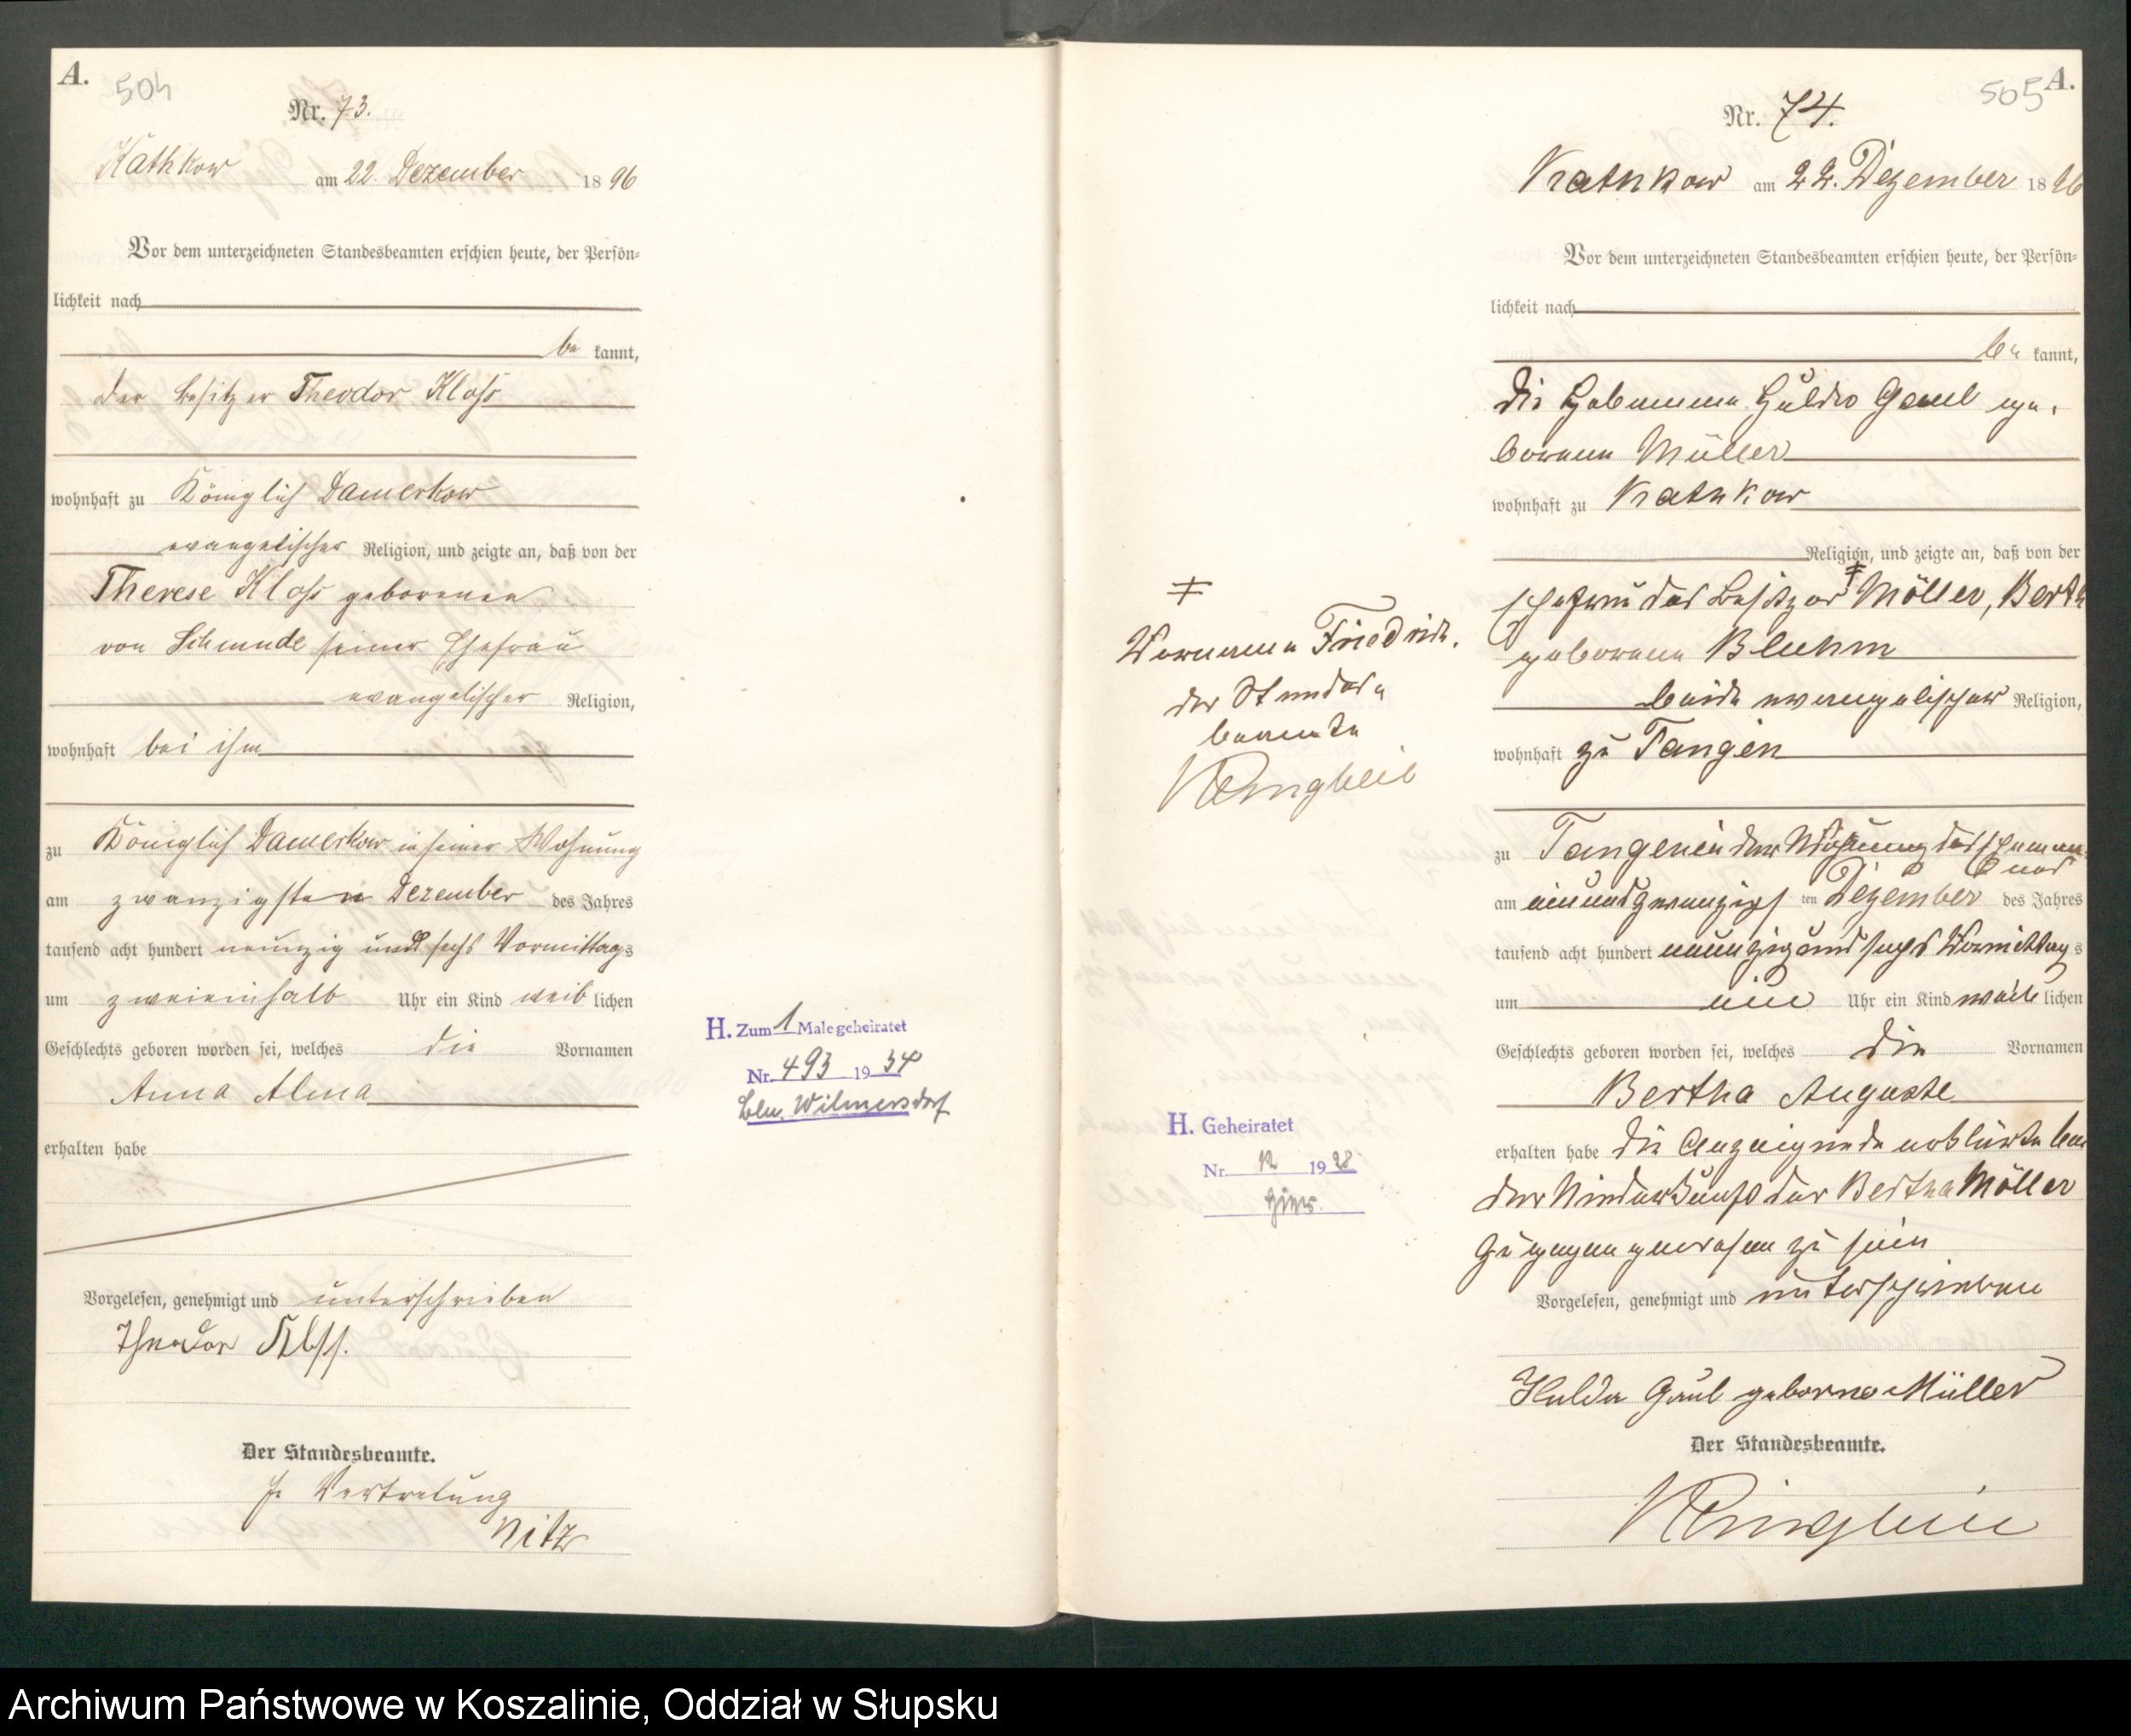 A.
504
Nr. 73.
Kathkow am 22. Dezember 1896
Vor dem unterzeichneten Standesbeamten erschien heute, der Persön-
lichkeit nach
be kannt,
der Besitzer Theodor Kloß
wohnhaft zu Königlich Damerkow
evangelischer Religion, und zeigte an, daß von der
Therese Kloß geborenen
von Schmude seiner Ehefrau
evangelischer Religion,
wohnhaft bei ihm
zu Königlich Damerkow in seiner Wohnung
am zwanzigsten Dezember des Jahres
tausend acht hundert neunzig und sechs Vormittags
um zweieinhalb Uhr ein Kind weiblichen
Geschlechts geboren worden sei, welches die Vornamen
Anna Alma
erhalten habe
Vorgelesen, genehmigt und unterschrieben
Theodor Kloss.
Der Standesbeamte.
In Vertretung
Nitz
H. Zum 1 Male geheiratet
Nr. 493 1934
Bln. Wilmersdorf
A.
505
Nr. 74.
Kathkow am 22. Dezember 1896
Vor dem unterzeichneten Standesbeamten erschien heute, der Persön-
lichkeit nach
be kannt,
die Hebamme Hulda Gaul ge-
borene Müller
wohnhaft zu Kathkow
Religion, und zeigte an, daß von der
Ehefrau des Besitzers ‡ Möller, Bertha
geborene Bluhm
beide evangelischer Religion,
wohnhaft zu Tangen
zu Tangen in der Wohnung des Ehemannes
am einundzwanzigsten Dezember des Jahres
tausend acht hundert neunzig und sechs Vormittags
um ein Uhr ein Kind weiblichen
Geschlechts geboren worden sei, welches die Vornamen
Bertha Auguste
erhalten habe die Anzeigende erklärte bei
der Niederkunft der Bertha Möller
zugegen gewesen zu sein
Vorgelesen, genehmigt und unterschrieben
Hulda Gaul geborne Müller
Der Standesbeamte.
‡
Vorname Friedrich.
der Standes
beamte
H. Geheiratet
Nr. 12 1928
hier.
Archiwum Państwowe w Koszalinie, Oddział w Słupsku